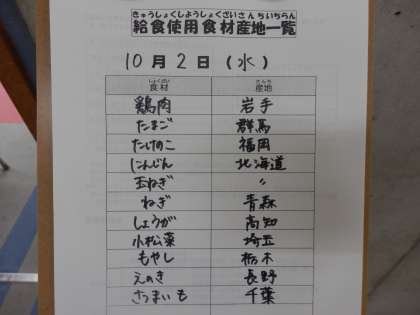 きゅうしょくしようしょくざいさんちいちらん
給食使用食材産地一覧
10月2日(水)
しょくざい さんち
食材 産地
鶏肉 岩手
たまご 群馬
たけのこ 福岡
にんじん 北海道
玉ねぎ 〃
ねぎ 青森
しょうが 高知
小松菜 埼玉
もやし 栃木
えのき 長野
さつまいも 千葉